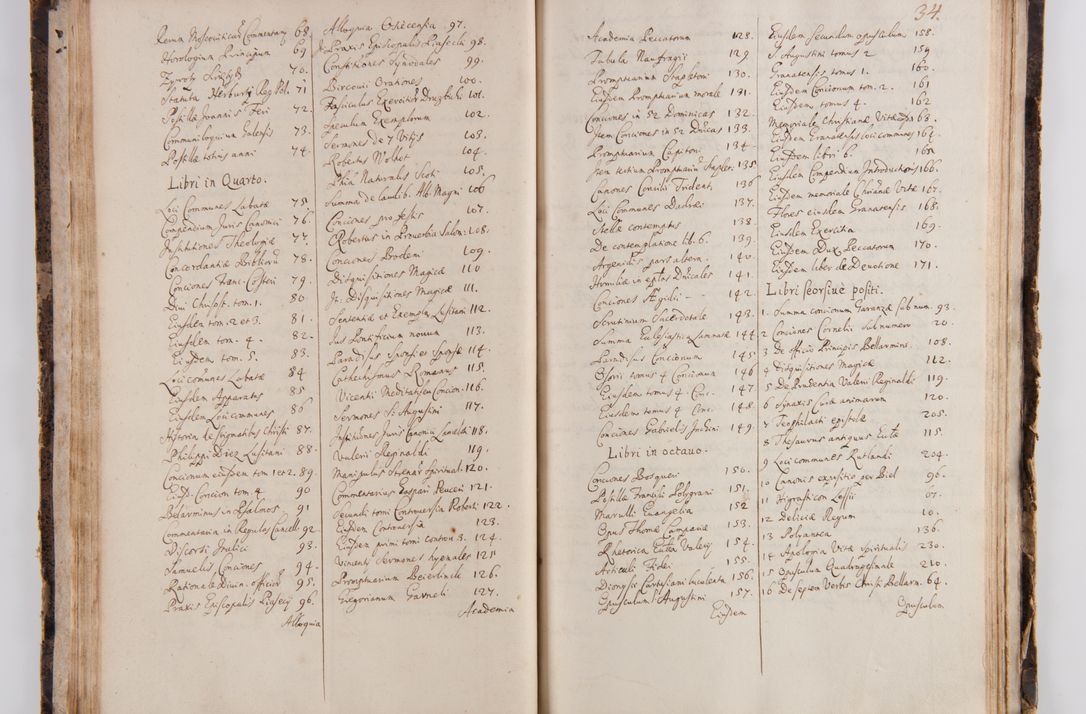 Rerum Moscoviticarum Commentary 68
Horologium Principum 69
70.
Statuta Herburti Reg. Pol. 71
Postilla Joannis Feri 72.
Communiloquium 73.
Postilla totius anni 74.
Libri in Quarto.
Loci Communes Labatæ 75.
Compendium Juris Canonici 76
Institutiones Theologiæ 77.
Concordantiæ Bibliorū 78.
Conciones Franc. Costeri 79.
Divi Chrisost. tom. 1. 80
Eiusdem tom. 2 et 3. 81.
Eiusdem tom. 4. 82.
Eiusdem tom. 5. 83.
Loci coṁunes Labatæ 84
Eiusdem Apparatus 85
Eiusdem Loci communes 86
Historia de Stigmatibus Christi 87.
Philippi Diez Lusitani 88.
Concionum eiusdem tom 1 et 2. 89.
Eiusd. Concion tom. 4. 90
Belarminus in Psalmos 91
Commentaria in Regulas Cancell. 92
Discorsi Italici 93.
Samuelis Conciones 94.
Rationale Divin. officior. 95.
Praxis Episcopalis Piasecij 96.
Alloquia
Alloquia Osiecensia 97.
Praxis Episcopalis Piasecki 98.
Constitiones Synodales 99.
Orationes 100.
Fasciculus Exercitior Druzbicki 101.
Speculum Exemplorum 102.
Sermones de 7 Vitijs 103.
Robertus Holkot 104.
Phia Naturalis Scoti 105.
Summa de laudib. Alb. Magni 106
Conciones pro festis 107.
Robertus in Proverbia Salom: 108.
Conciones Brodem 109.
Disquisitiones Magicæ 110
It. Disquisitiones Magicæ 111.
Sententiæ et Exempla Lusitani 112.
Jus Pontificium novum 113.
Paradisus Sponsi et Sponsæ 114.
Cathechismus Romanus 115.
Vicentii Meditationes Concion. 116.
Sermones S. Augustini 117.
Institutiones Juris Canonici 118.
Valerii Reginaldi 119.
Manipulus spiritual. 120.
Commentarius Gaspari Peuceri 121.
Secundi tomi Controversia Robert: 122.
Eiusdem Controversiæ 123.
Eiusdem primi tomi controv. 3. 124.
Vincenti Sermones hyemales 125
Promptuarium Beierlinck 126.
127.
Academia
34.
Academia Peccatorum 128.
Tabula Naufragii 129
Promptuarium Stapletoni 130.
Eiusdem Promptuarium morale 131.
Conciones in 52 Dominicas 132.
Item Conciones in 52 Dnicas 133.
Promptuarium 134
Item tertium Promptuarium Stapler. 135
Canones Concilii Trident. 136
Loci Communes Dadræi 137.
Stellæ contemptus 138.
De contemplatione lib. 6. 139.
Argenidis pars altera. 140.
Homiliæ in eptas Dnicales 141.
Conciones Ægidii - - 142.
Scrutinium Sacerdotale 143.
Summa Ecclesiastica 144
Paradisus Concionum 145
Osorii tomus 4 Concionum 146
Eiusdem tomus 4. Conc. 147
Eiusdem tomus 4. Conc. 148.
Conciones Gabrielis Inchini 149.
Libri in octavo.
Conciones Bosquieri 150.
Postilla Francisci Polygrani 151.
Marulli Evangelia 152
Opus Thomæ Campani 153.
Rhetorica 154.
Articuli Fidei 155.
Dionysii Cartusiani 156.
Opusculum S. Augustini 157.
Eiusdem
Eiusdem secundum opusculum 158.
S. Augustini tomus 2 159
Granatensis tomus 1. 160.
Eiusdem Concionum tom. 2. 161
Eiusdem tomus 4. 162
Memoriale Christianæ Vitæ 163.
Eiusdem Granatensis loci communes 164.
Eiusdem libri 6. 165
Eiusdem Compendium Introductionis 166.
Eiusdem memoriale Chrianæ Vitæ 167.
Flores eiusdem Granatensis 168.
Eiusdem Exercitia 169.
Eiusdem Dux Peccatorum 170.
Eiusdem liber de Devotione 171.
Libri seorsivè positi.
1. Summa conciorum Garanzæ sub num. 93.
2 Conciones Cornelii sub numero 20.
3 De officio Principis Bellarmini. 108.
4 Disquisitiones Magicæ 112.
5 De Prudentia Valerii Reginaldi 119.
6 Synaxis Curæ animarum 120.
7 Teophilacti epistolæ 205.
8 Thesaurus antiquus 115.
9 Loci communes Rutlandi 204.
10 Canonis expositio per Biel 96.
11 Lossii 67.
12 Deliciæ Regum 10.
13 Polyantea 136.
14 Apologia Vitæ Spiritualis 230.
15 Opusculum Quadragesimale 210.
16 De septem Verbis Christi Bellarm. 64.
Opusculum